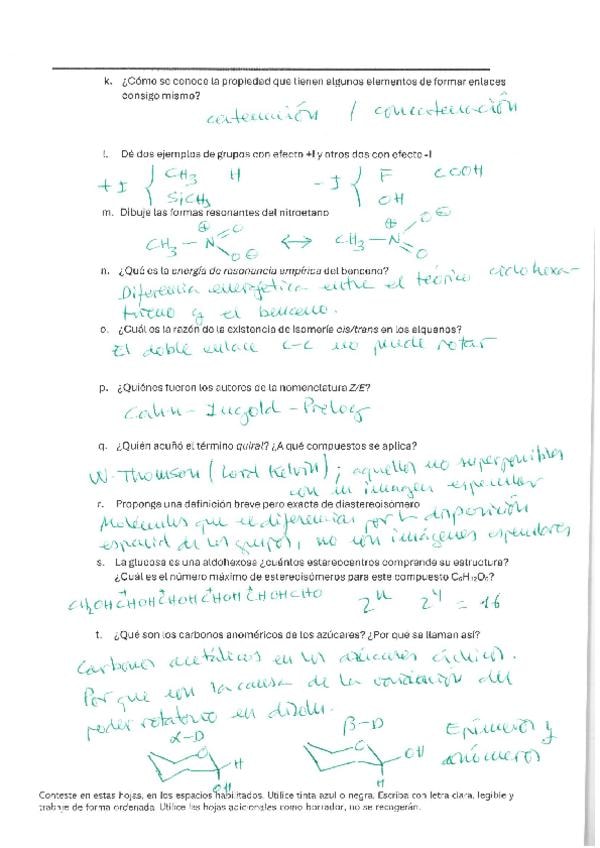 k. ¿Cómo se conoce la propiedad que tienen algunos elementos de formar enlaces
consigo mismo?
catenación / concatenación
l. Dé dos ejemplos de grupos con efecto +I y otros dos con efecto -I
+I { CH3 H -I { F COOH
SiCH3 OH
m. Dibuje las formas resonantes del nitroetano
CH3-N⊕ O O⊖ ↔ CH3-N⊕ O⊖ O
n. ¿Qué es la energía de resonancia empírica del benceno?
Diferencia energética entre el teórico ciclohexa-
trieno y el benceno.
o. ¿Cuál es la razón de la existencia de isomería cis/trans en los alquenos?
El doble enlace C-C no puede rotar
p. ¿Quiénes fueron los autores de la nomenclatura Z/E?
Cahn - Ingold - Prelog
q. ¿Quién acuñó el término quiral? ¿A qué compuestos se aplica?
W. Thomson (Lord Kelvin); aquellos no superponibles
con su imagen especular
r. Proponga una definición breve pero exacta de diastereoisómero
Moléculas que se diferencian por la disposición
espacial de los grupos, no son imágenes especulares
s. La glucosa es una aldohexosa ¿cuántos estereocentros comprende su estructura?
¿Cuál es el número máximo de estereoisómeros para este compuesto C6H12O6?
CH2OH C*HOH C*HOH C*HOH C*HOH CHO 2^n 2^4 = 16
t. ¿Qué son los carbonos anoméricos de los azúcares? ¿Por qué se llaman así?
Carbonos acetálicos en los azúcares cíclicos.
Porque son la causa de la variación del
poder rotatorio en disoln.
α-D β-D Epímeros y
O H O OH anómeros
OH H
Conteste en estas hojas, en los espacios habilitados. Utilice tinta azul o negra. Escriba con letra clara, legible y
trabaje de forma ordenada. Utilice las hojas adicionales como borrador, no se recogerán.